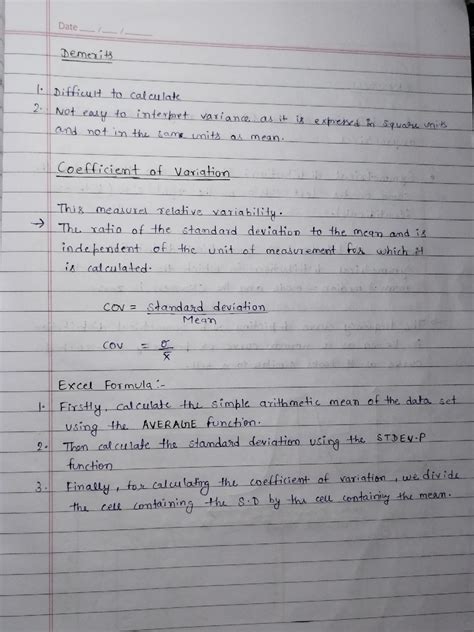 Date __/__/__
Demerits
1. Difficult to calculate
2. Not easy to interpret variance as it is expressed in square units
and not in the same units as mean.
Coefficient of Variation
This measures relative variability.
→ The ratio of the standard deviation to the mean and is
independent of the unit of measurement for which it
is calculated.
COV = standard deviation
Mean
COV = σ
x̄
Excel Formula:-
1. Firstly, calculate the simple arithmetic mean of the data set
using the AVERAGE function.
2. Then calculate the standard deviation using the STDEV.P
function
3. Finally, for calculating the coefficient of variation, we divide
the cell containing the S.D by the cell containing the mean.